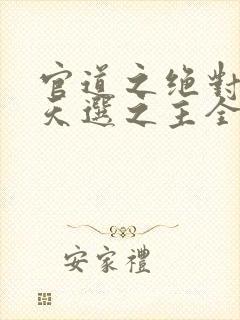 官道之绝對
天選之主全
安家禮